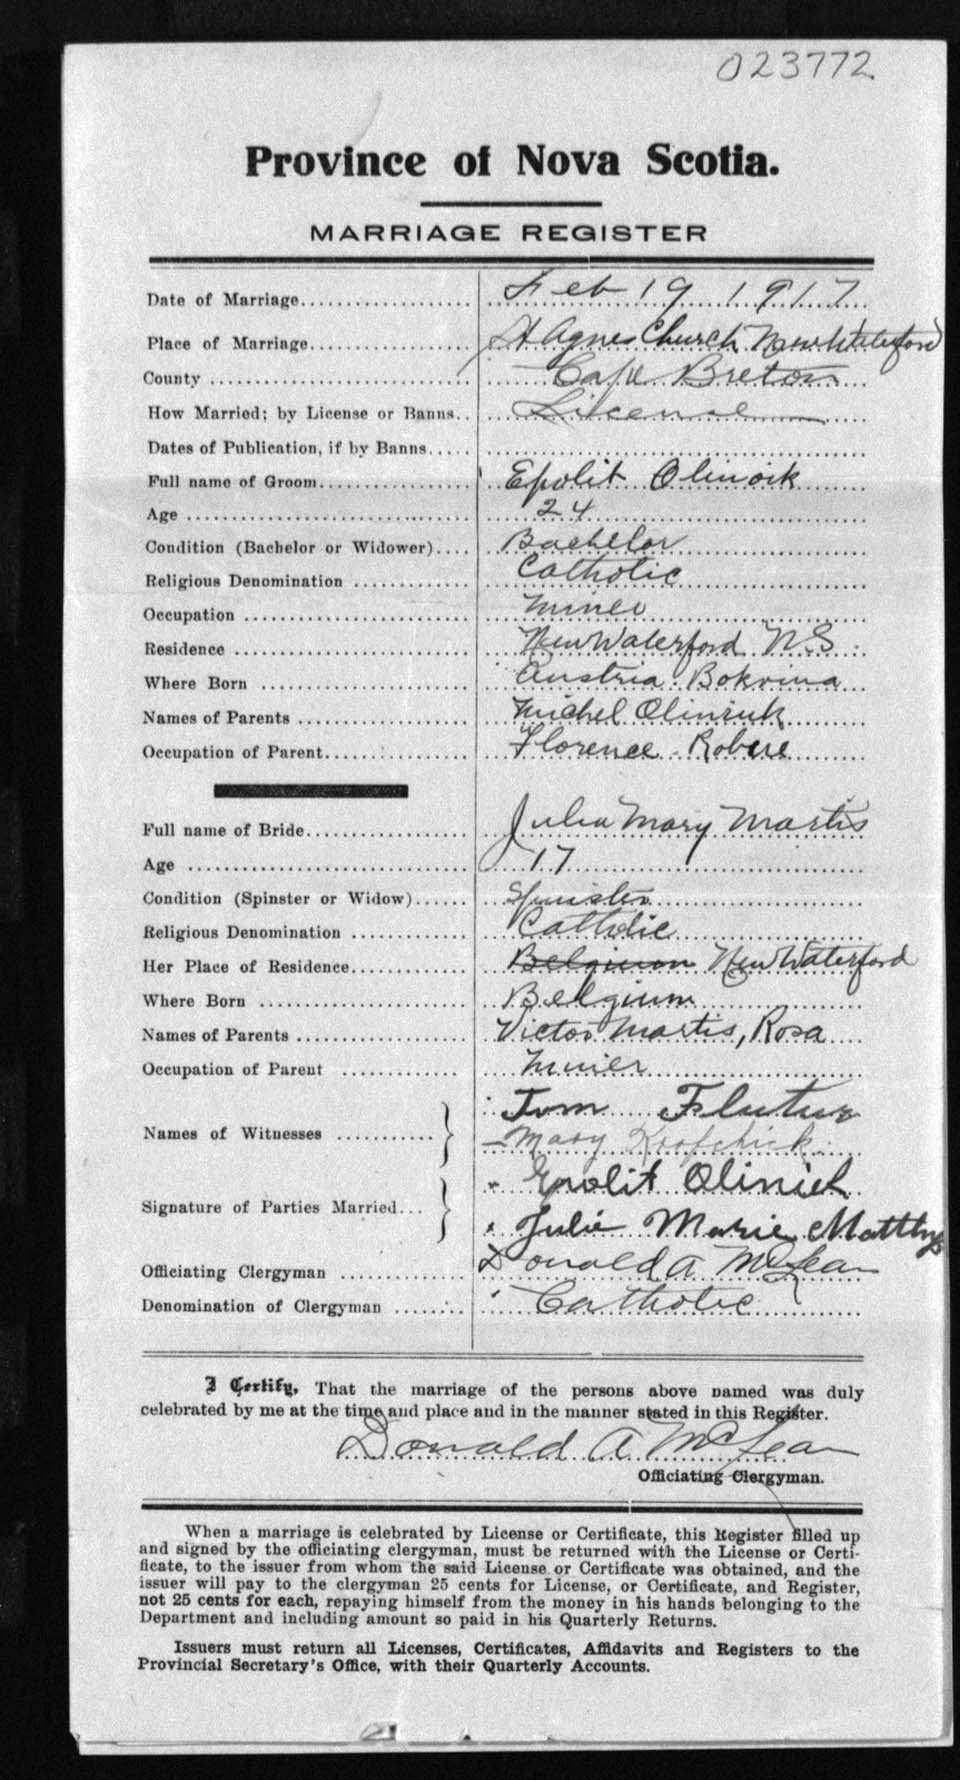 023772
Province of Nova Scotia.
MARRIAGE REGISTER
Date of Marriage.................... Feb 19 1917
Place of Marriage................... St Agnes Church New Waterford
County .......................... Cape Breton
How Married; by License or Banns.. License
Dates of Publication, if by Banns.....
Full name of Groom.................. Epolit Olinoik
Age ............................. 24
Condition (Bachelor or Widower).... Bachelor
Religious Denomination ............. Catholic
Occupation ......................... Miner
Residence .......................... New Waterford N.S
Where Born ........................ Austria Bokovina
Names of Parents .................... Michel Oliniuk
Occupation of Parent................. Florence Robere
Full name of Bride................... Julia Mary Martis
Age ............................. 17
Condition (Spinster or Widow)...... Spinster
Religious Denomination ............. Catholic
Her Place of Residence.............. Belguion New Waterford
Where Born ........................ Belgium
Names of Parents .................... Victor Martis, Rosa
Occupation of Parent ............. Minier
Tom Flutur
Names of Witnesses ...........
Mary Krofchick
Epolit Oliniek
Signature of Parties Married...
Julie Marie Matthys
Officiating Clergyman .............. Donald A McLean
Denomination of Clergyman ........ Catholic
I Certify, That the marriage of the persons above named was duly
celebrated by me at the time and place and in the manner stated in this Register.
Donald A McLean
Officiating Clergyman.
When a marriage is celebrated by License or Certificate, this Register filled up
and signed by the officiating clergyman, must be returned with the License or Certi-
ficate, to the issuer from whom the said License or Certificate was obtained, and the
issuer will pay to the clergyman 25 cents for License, or Certificate, and Register,
not 25 cents for each, repaying himself from the money in his hands belonging to the
Department and including amount so paid in his Quarterly Returns.
Issuers must return all Licenses, Certificates, Affidavits and Registers to the
Provincial Secretary's Office, with their Quarterly Accounts.